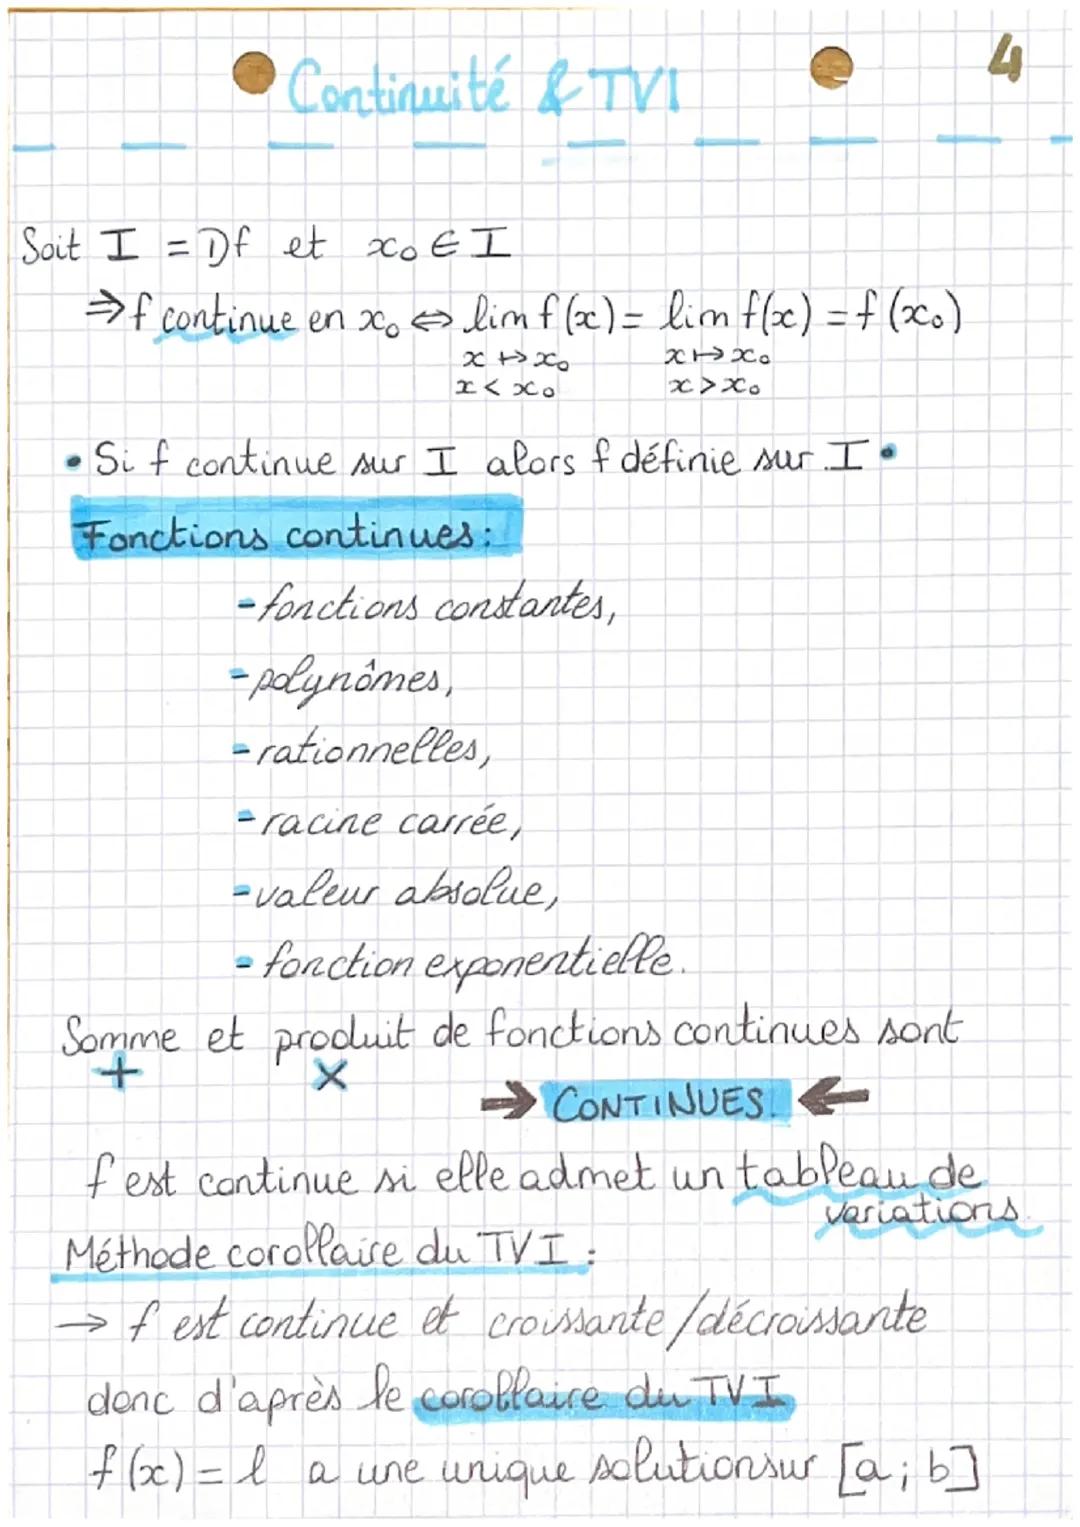 4
Continuité & TVI
Soit I = Df et x₀ ∈ I
⇒ f continue en x₀ ⇔ lim f(x) = lim f(x) = f(x₀)
x ↦ x₀ x ↦ x₀
x < x₀ x > x₀
• Si f continue sur I alors f définie sur I •
Fonctions continues :
- fonctions constantes,
- polynômes,
- rationnelles,
- racine carrée,
- valeur absolue,
- fonction exponentielle.
Somme et produit de fonctions continues sont
+ ×
→ CONTINUES. ←
f est continue si elle admet un tableau de
variations.
Méthode corollaire du TVI :
→ f est continue et croissante/décroissante
donc d'après le corollaire du TVI
f(x) = l a une unique solution sur [a ; b]